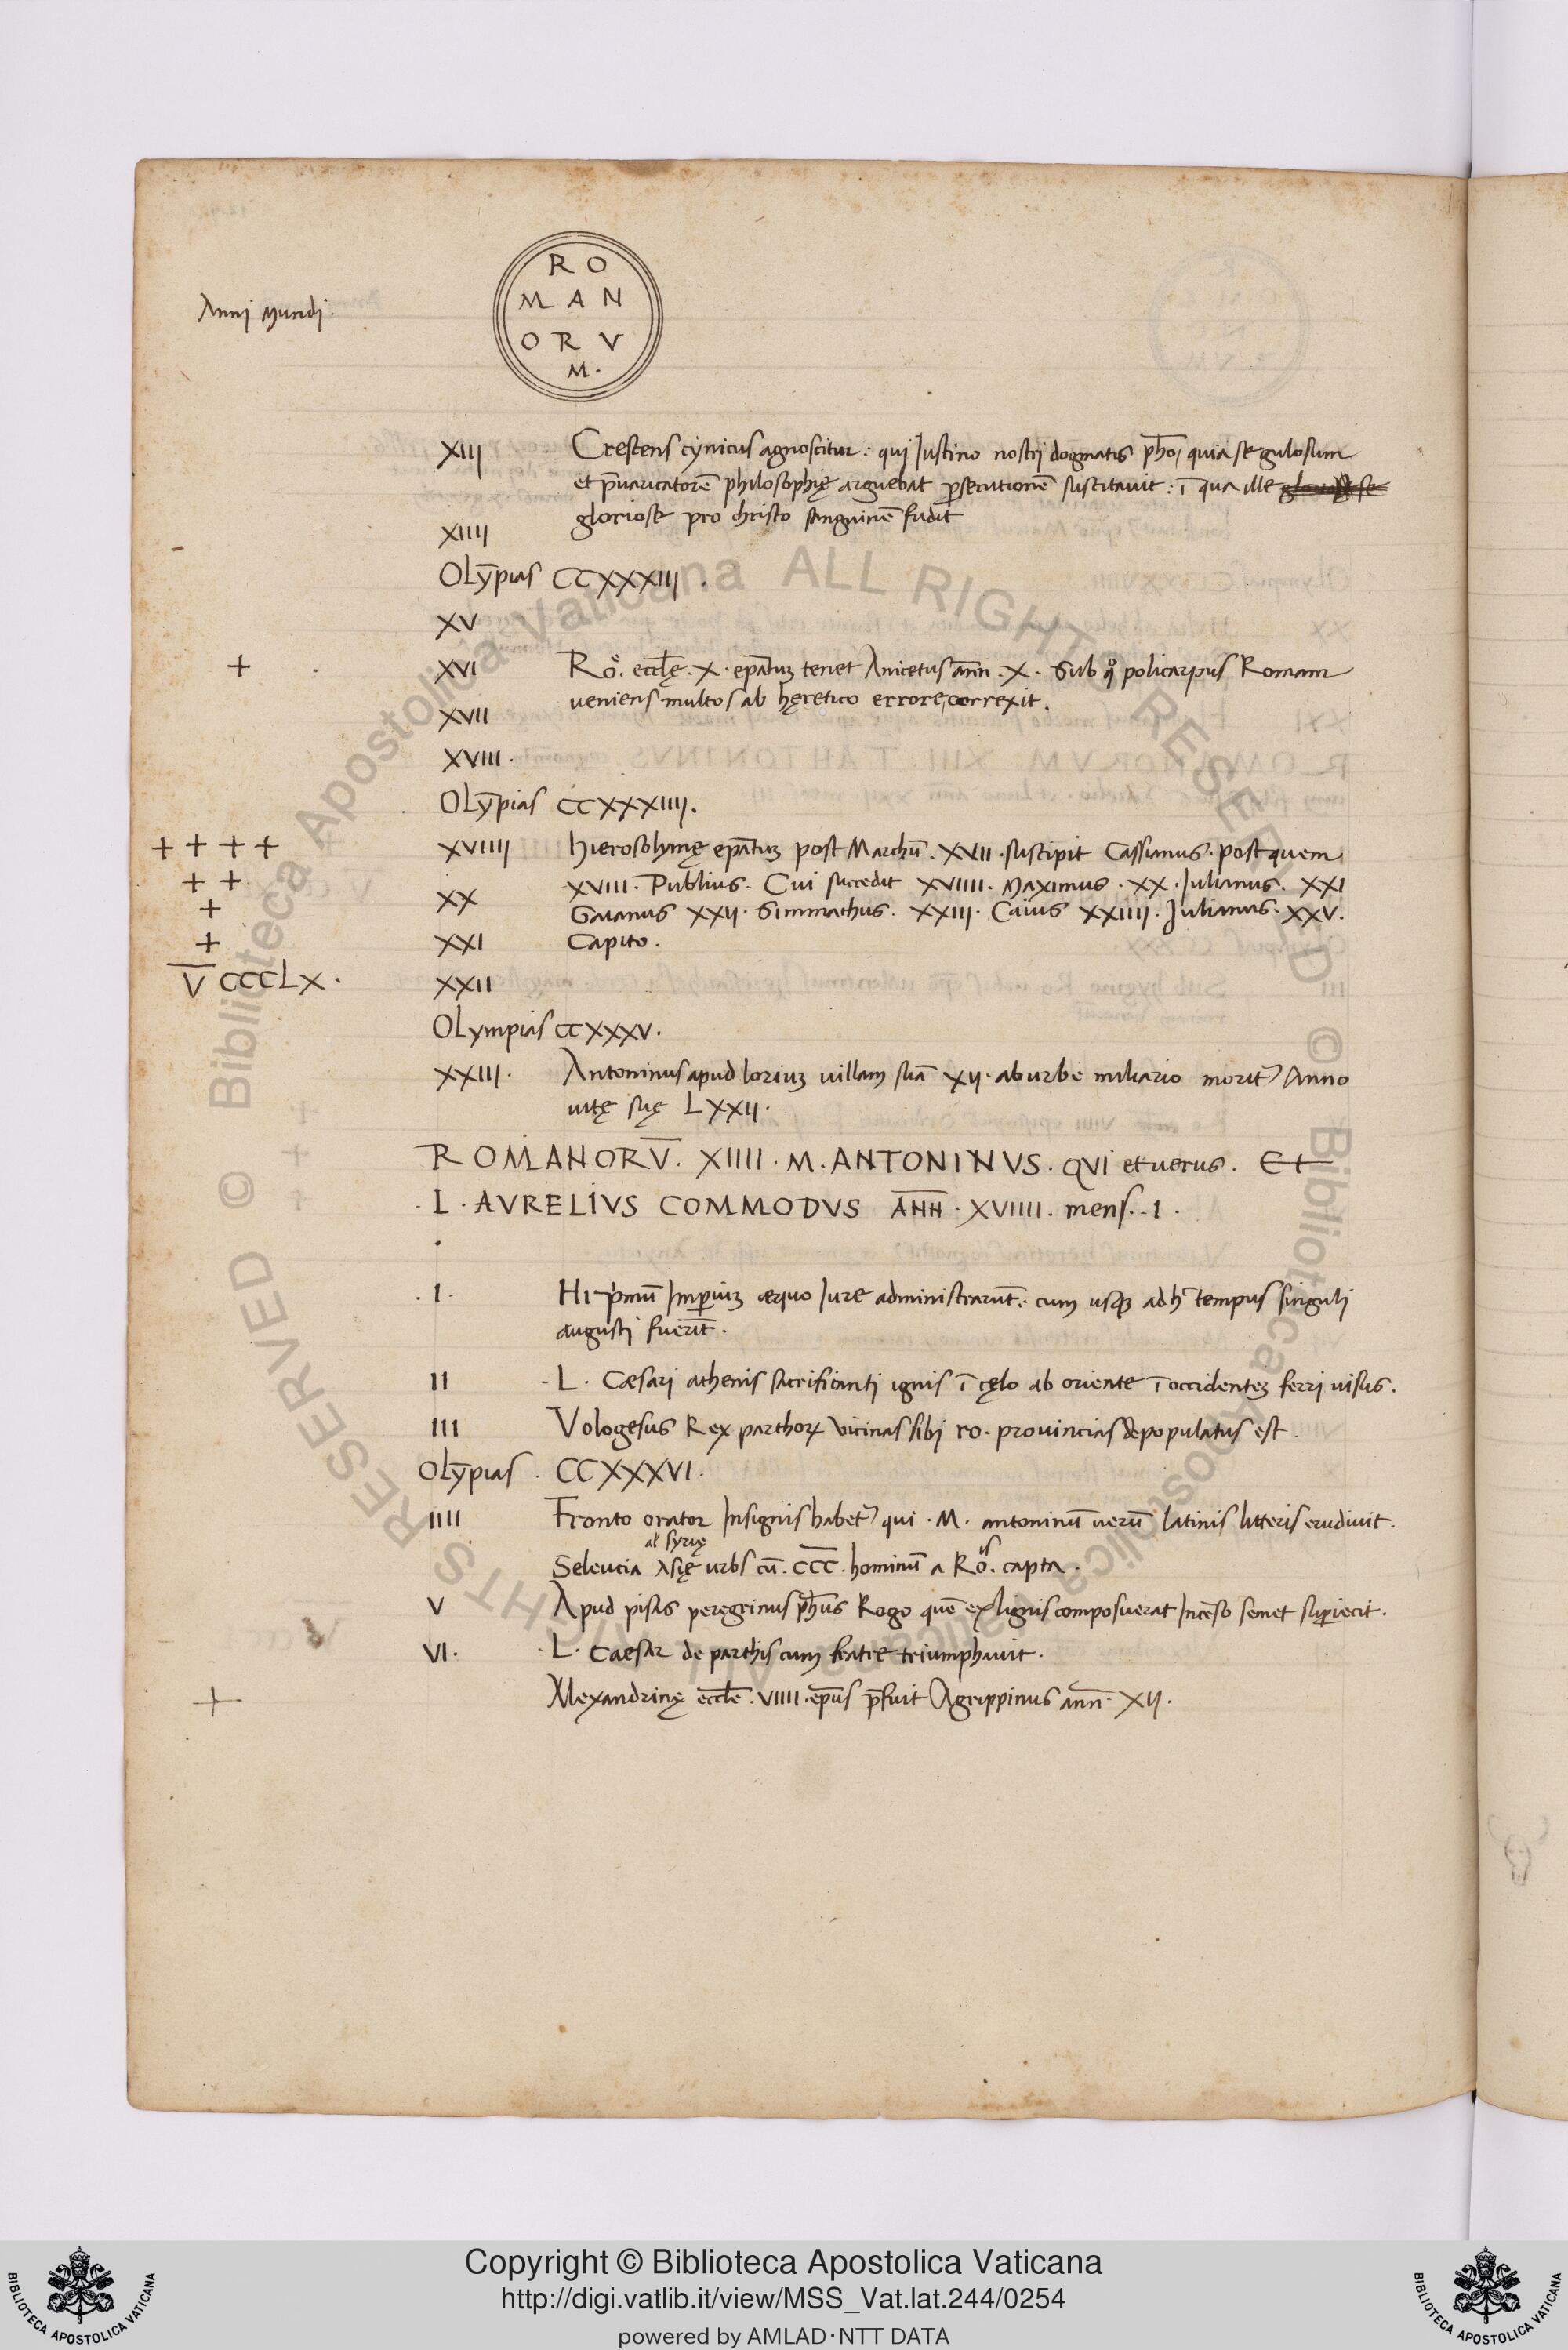 Anni Mundi.
RO
MAN
ORV
M.
XIII Crescens cynicus agnoscitur: qui Iustino nostri dogmatis pħo, quia se gulosum
et p̄uaricatorē philosophię arguebat ꝑsecutionē suscitauit: ī qua ille
XIIII gloriose pro christo sanguinē fudit
OLȳpias CCXXXIII.
XV
+ XVI Ro. eccłę. X. epātuꝫ tenet Anicetus ān̄n. X. Sub qͦ policarpus Romam
XVII ueniens multos ab hęretico errore, correxit.
XVIII.
OLȳpias CCXXXIIII.
+ + + + XVIIII Hierosolymę epātuꝫ post Marchū. XVII. suscipit Cassianus. post quem
+ + XX XVIII. Publius. Cui succedit XVIIII. Maximus. XX. Iulianus. XXI
+ Gaianus XXII. Simmachus. XXIII. Caius XXIIII. Iulianus. XXV.
+ XXI Capito.
V̅ CCCLX. XXII
OLympias CCXXXV.
XXIII. Antoninus apud lorium uillam suā XII. ab urbe miliario morit᷑ Anno
uitę suę LXXII.
ROMANORV̄. XIIII. M. ANTONINVS. QVI et uerus. Et
L. AVRELIVS COMMODVS A̅N̅N̅. XVIIII. mens. I.
.I. Hi pͥmū Imꝑiuꝫ æquo Iure administrarūt: cum usqꝫ ad h̄ tempus singuli
augusti fuerīt.
II L. Cæsari athenis sacrificanti ignis ī cęlo ab oriente ī occidenteꝫ ferri uisus.
III Vologesus Rex parthoꝝ vicinas sibi ro. prouincias depopulatus est.
OLȳpias. CCXXXVI.
IIII Fronto orator Insignis habet᷑ qui. M. antoninū uerū latinis litteris erudiuit.
al' syrię
Seleucia Asię urbs cū. C̅C̅C̅. hominū a Ro.ͥˢ capta.
V Apud pisas peregrinus pħus Rogo quē ex lignis composuerat Incēso semet suꝑiecit.
VI. L. Caesar de parthis cum fratre triumphauit.
+ Alexandrinę eccłę. VIIII. ep̄us p̄fuit Agrippinus ān̄n. XII.
Copyright © Biblioteca Apostolica Vaticana
http://digi.vatlib.it/view/MSS_Vat.lat.244/0254
powered by AMLAD·NTT DATA
BIBLIOTECA APOSTOLICA VATICANA
BIBLIOTECA APOSTOLICA VATICANA
© Biblioteca Apostolica Vaticana ALL RIGHTS RESERVED
© Biblioteca Apostolica Vaticana ALL RIGHTS RESERVED